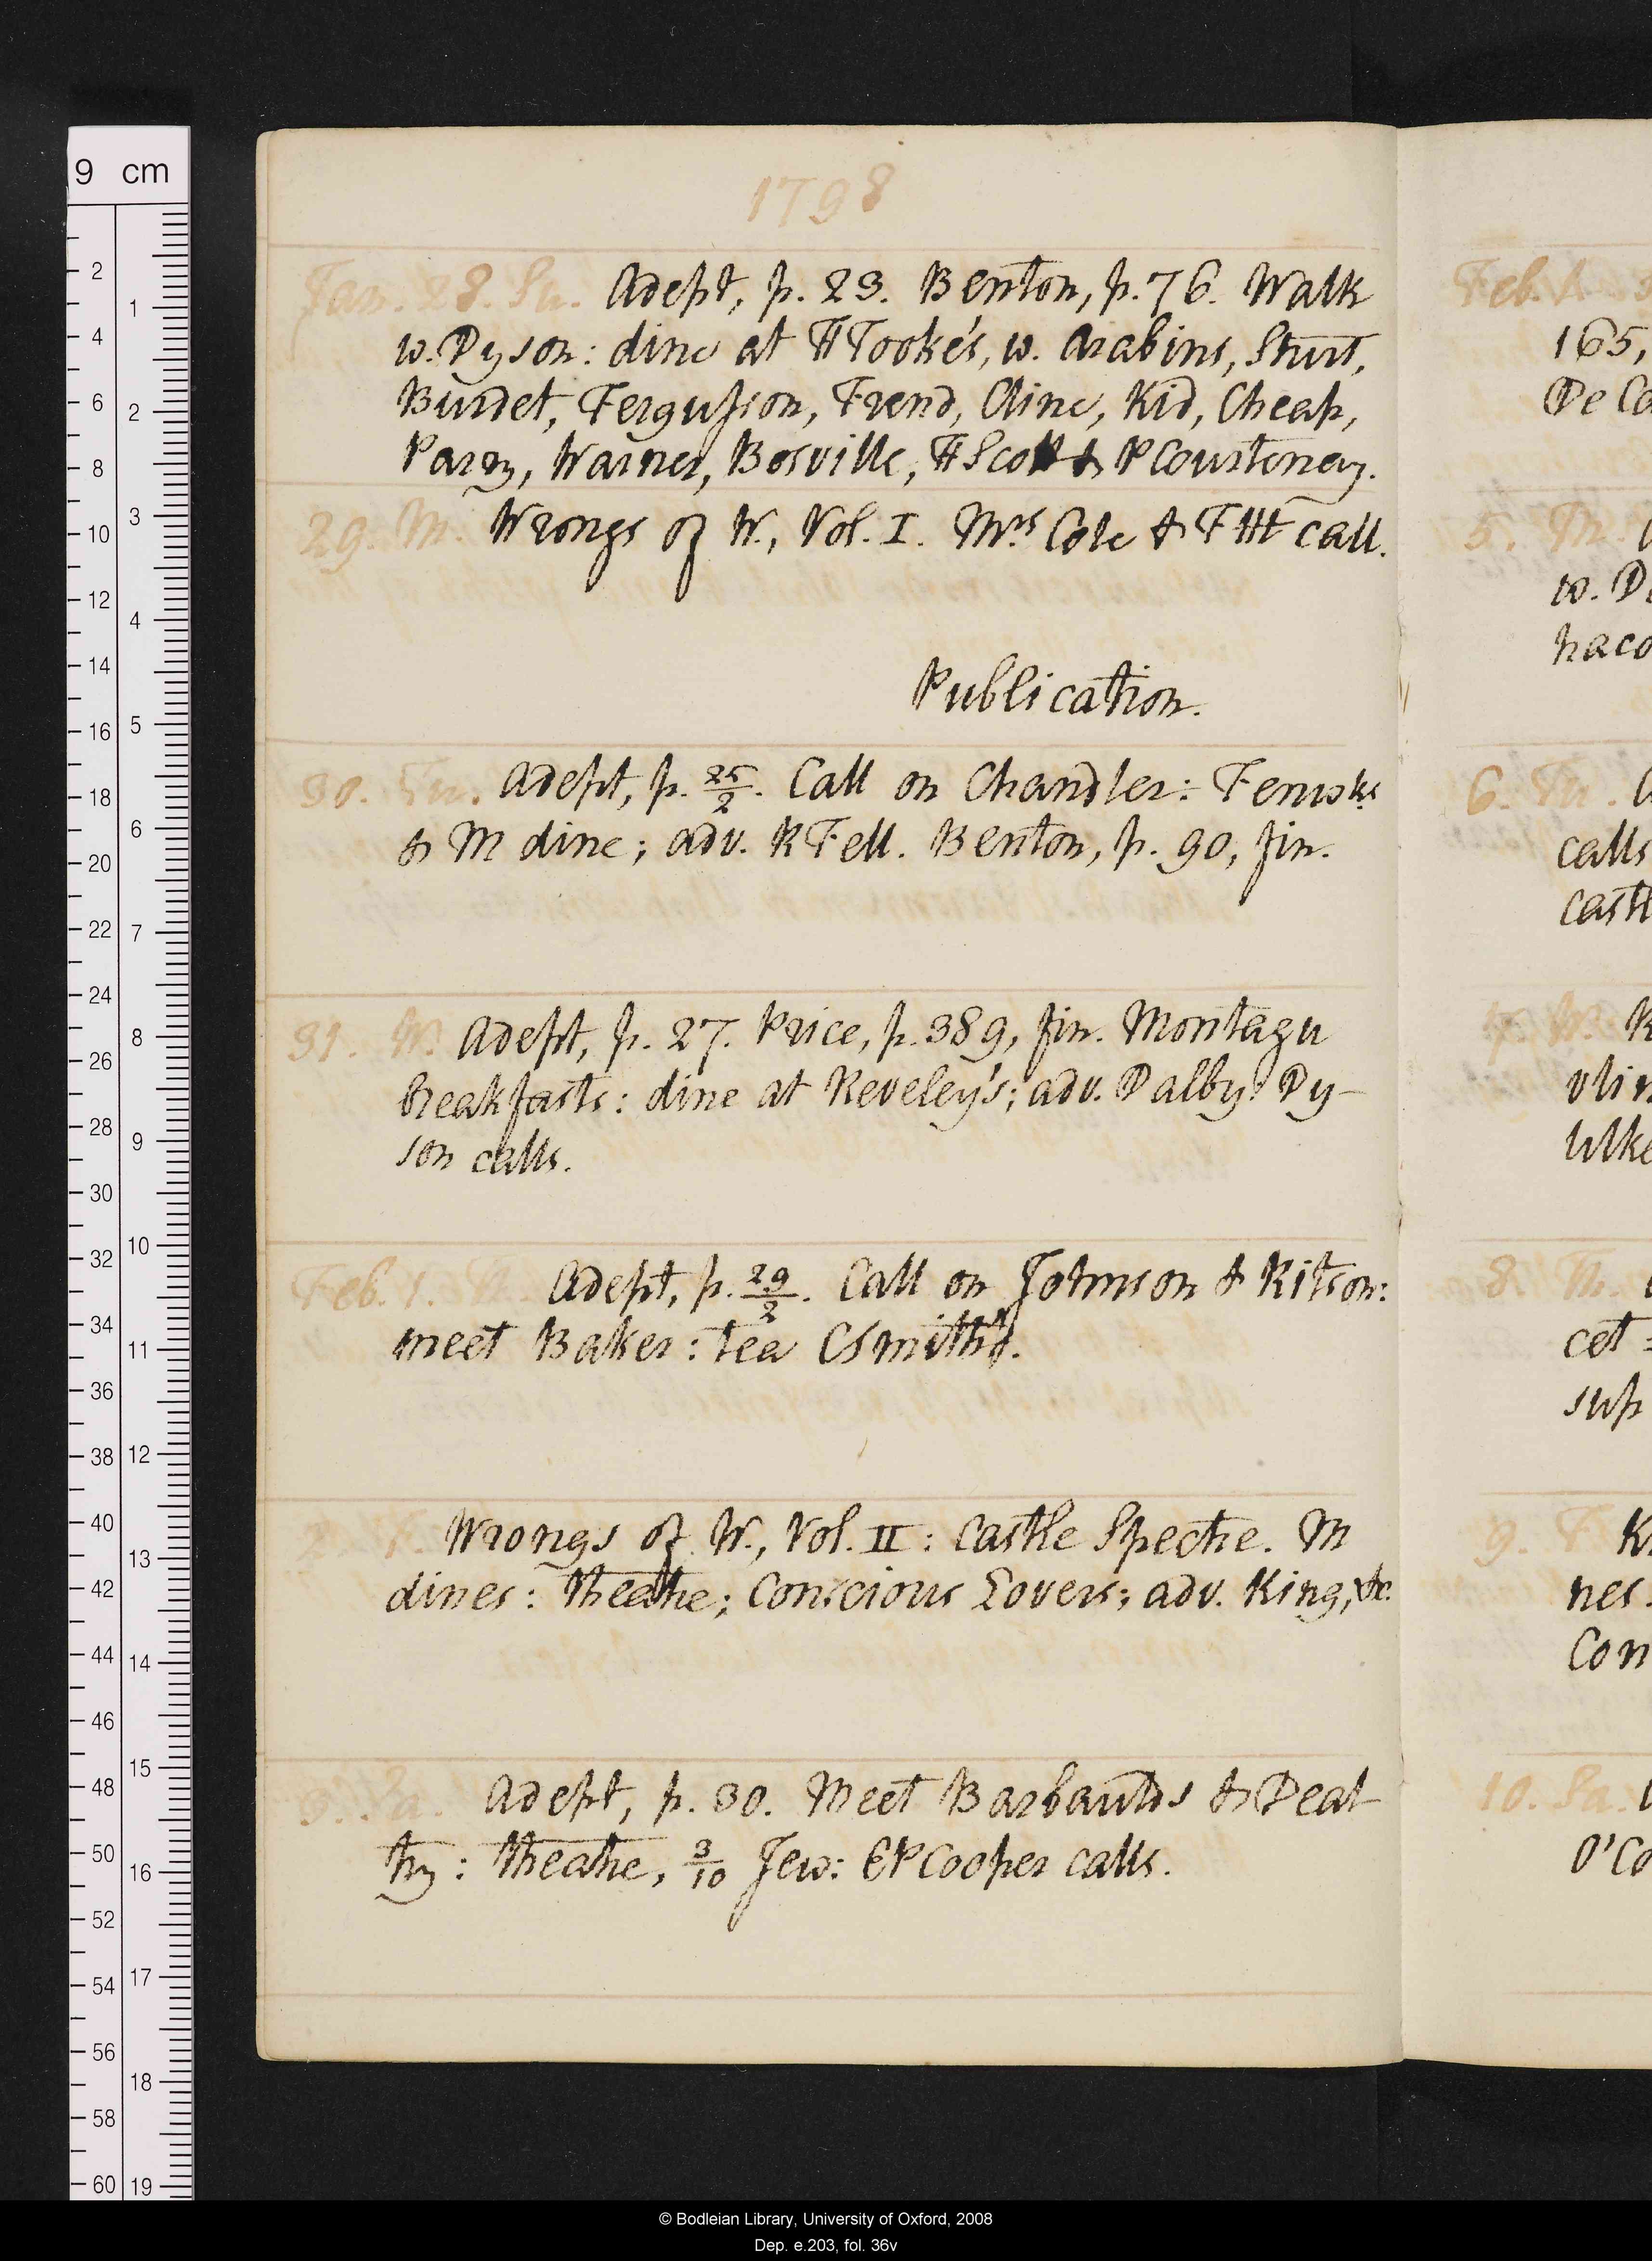 1798
Jan. 28. Su. Adept, p. 23. Benton, p. 76. Walk
w. Dyson: dine at HTooke's, w. Arabins, Sturt,
Burdet, Fergusson, Frend, Cline, Kid, Cheap,
Parry, Warner, Bosville, HScott & PCourtenay.
29. M. Wrongs of W., Vol. I. Mrs Cole & FHt call.
Publication.
30. Tu. Adept, p. 25/2. Call on Chandler: Fenwks
& M dine; adv. RFell. Benton, p. 90, fin.
31. W. Adept, p. 27. Price, p. 389, fin. Montagu
breakfasts: dine at Reveley's; adv. Dalby: Dy-
son calls.
Feb. 1. Th. Adept, p. 29/2. Call on Johnson & Ritson:
meet Baker: tea CSmith's.
2. F. Wrongs of W., Vol. II: Castle Spectre. M
dines: theatre; Conscious Lovers; adv. King, &c.
3. Sa. Adept, p. 30. Meet Barbaulds & Beat
ty: theatre, 3/10 Jew: EPCooper calls.
Feb. 4.
165,
De Co
5. M.
w. D
naco
6. Tu.
calls
castl
7. W. R
vlin
Ulke
8. Th.
cet
sup
9. F K
nes.
Con
10. Sa.
O'Co
9 cm
2
4
6
8
10
12
14
16
18
20
22
24
26
28
30
32
34
36
38
40
42
44
46
48
50
52
54
56
58
60
1
2
3
4
5
6
7
8
9
10
11
12
13
14
15
16
17
18
19
© Bodleian Library, University of Oxford, 2008
Dep. e.203, fol. 36v